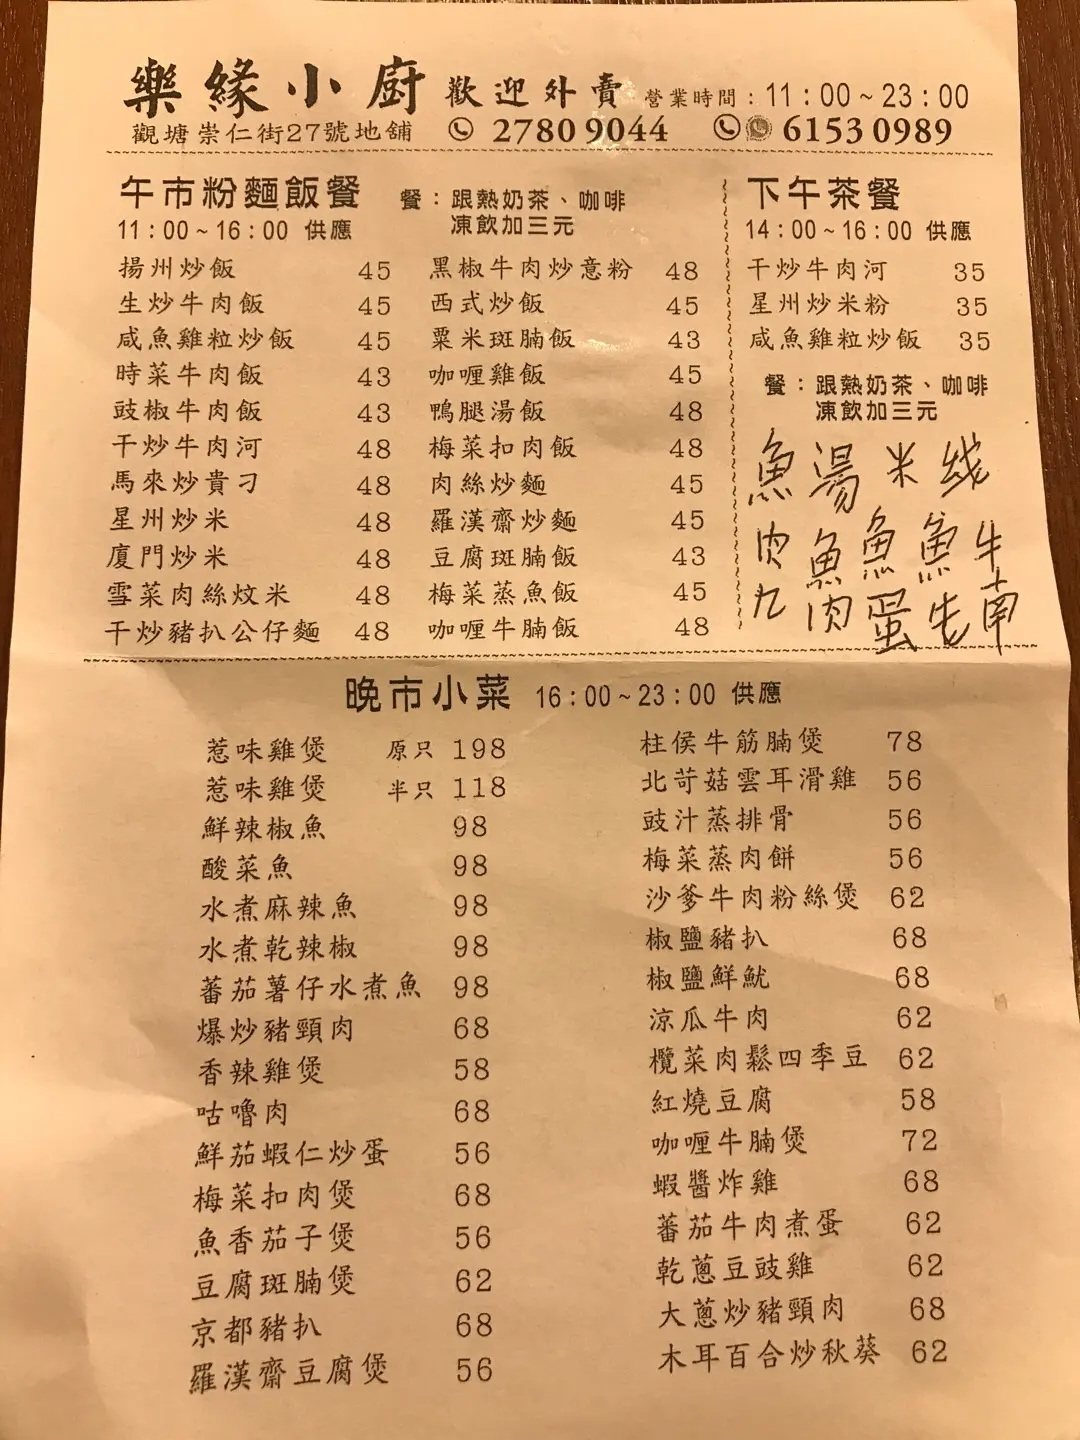 樂緣小廚 歡迎外賣 營業時間：11:00~23:00
觀塘崇仁街27號地舖 2780 9044 6153 0989
午市粉麵飯餐 餐：跟熱奶茶、咖啡
凍飲加三元
11:00~16:00 供應
揚州炒飯 45 黑椒牛肉炒意粉 48
生炒牛肉飯 45 西式炒飯 45
咸魚雞粒炒飯 45 粟米斑腩飯 43
時菜牛肉飯 43 咖喱雞飯 45
豉椒牛肉飯 43 鴨腿湯飯 48
干炒牛肉河 48 梅菜扣肉飯 48
馬來炒貴刁 48 肉絲炒麵 45
星州炒米 48 羅漢齋炒麵 45
廈門炒米 48 豆腐斑腩飯 43
雪菜肉絲炆米 48 梅菜蒸魚飯 45
干炒豬扒公仔麵 48 咖喱牛腩飯 48
下午茶餐
14:00~16:00 供應
干炒牛肉河 35
星州炒米粉 35
咸魚雞粒炒飯 35
餐：跟熱奶茶、咖啡
凍飲加三元
魚湯米线
肉魚魚魚牛
丸肉蛋
晚市小菜 16:00~23:00 供應
惹味雞煲 原只 198
惹味雞煲 半只 118
鮮辣椒魚 98
酸菜魚 98
水煮麻辣魚 98
水煮乾辣椒 98
蕃茄薯仔水煮魚 98
爆炒豬頸肉 68
香辣雞煲 58
咕嚕肉 68
鮮茄蝦仁炒蛋 56
梅菜扣肉煲 68
魚香茄子煲 56
豆腐斑腩煲 62
京都豬扒 68
羅漢齋豆腐煲 56
柱侯牛筋腩煲 78
北苛菇雲耳滑雞 56
豉汁蒸排骨 56
梅菜蒸肉餅 56
沙爹牛肉粉絲煲 62
椒鹽豬扒 68
椒鹽鮮魷 68
涼瓜牛肉 62
欖菜肉鬆四季豆 62
紅燒豆腐 58
咖喱牛腩煲 72
蝦醬炸雞 68
蕃茄牛肉煮蛋 62
乾蔥豆豉雞 62
大蔥炒豬頸肉 68
木耳百合炒秋葵 62